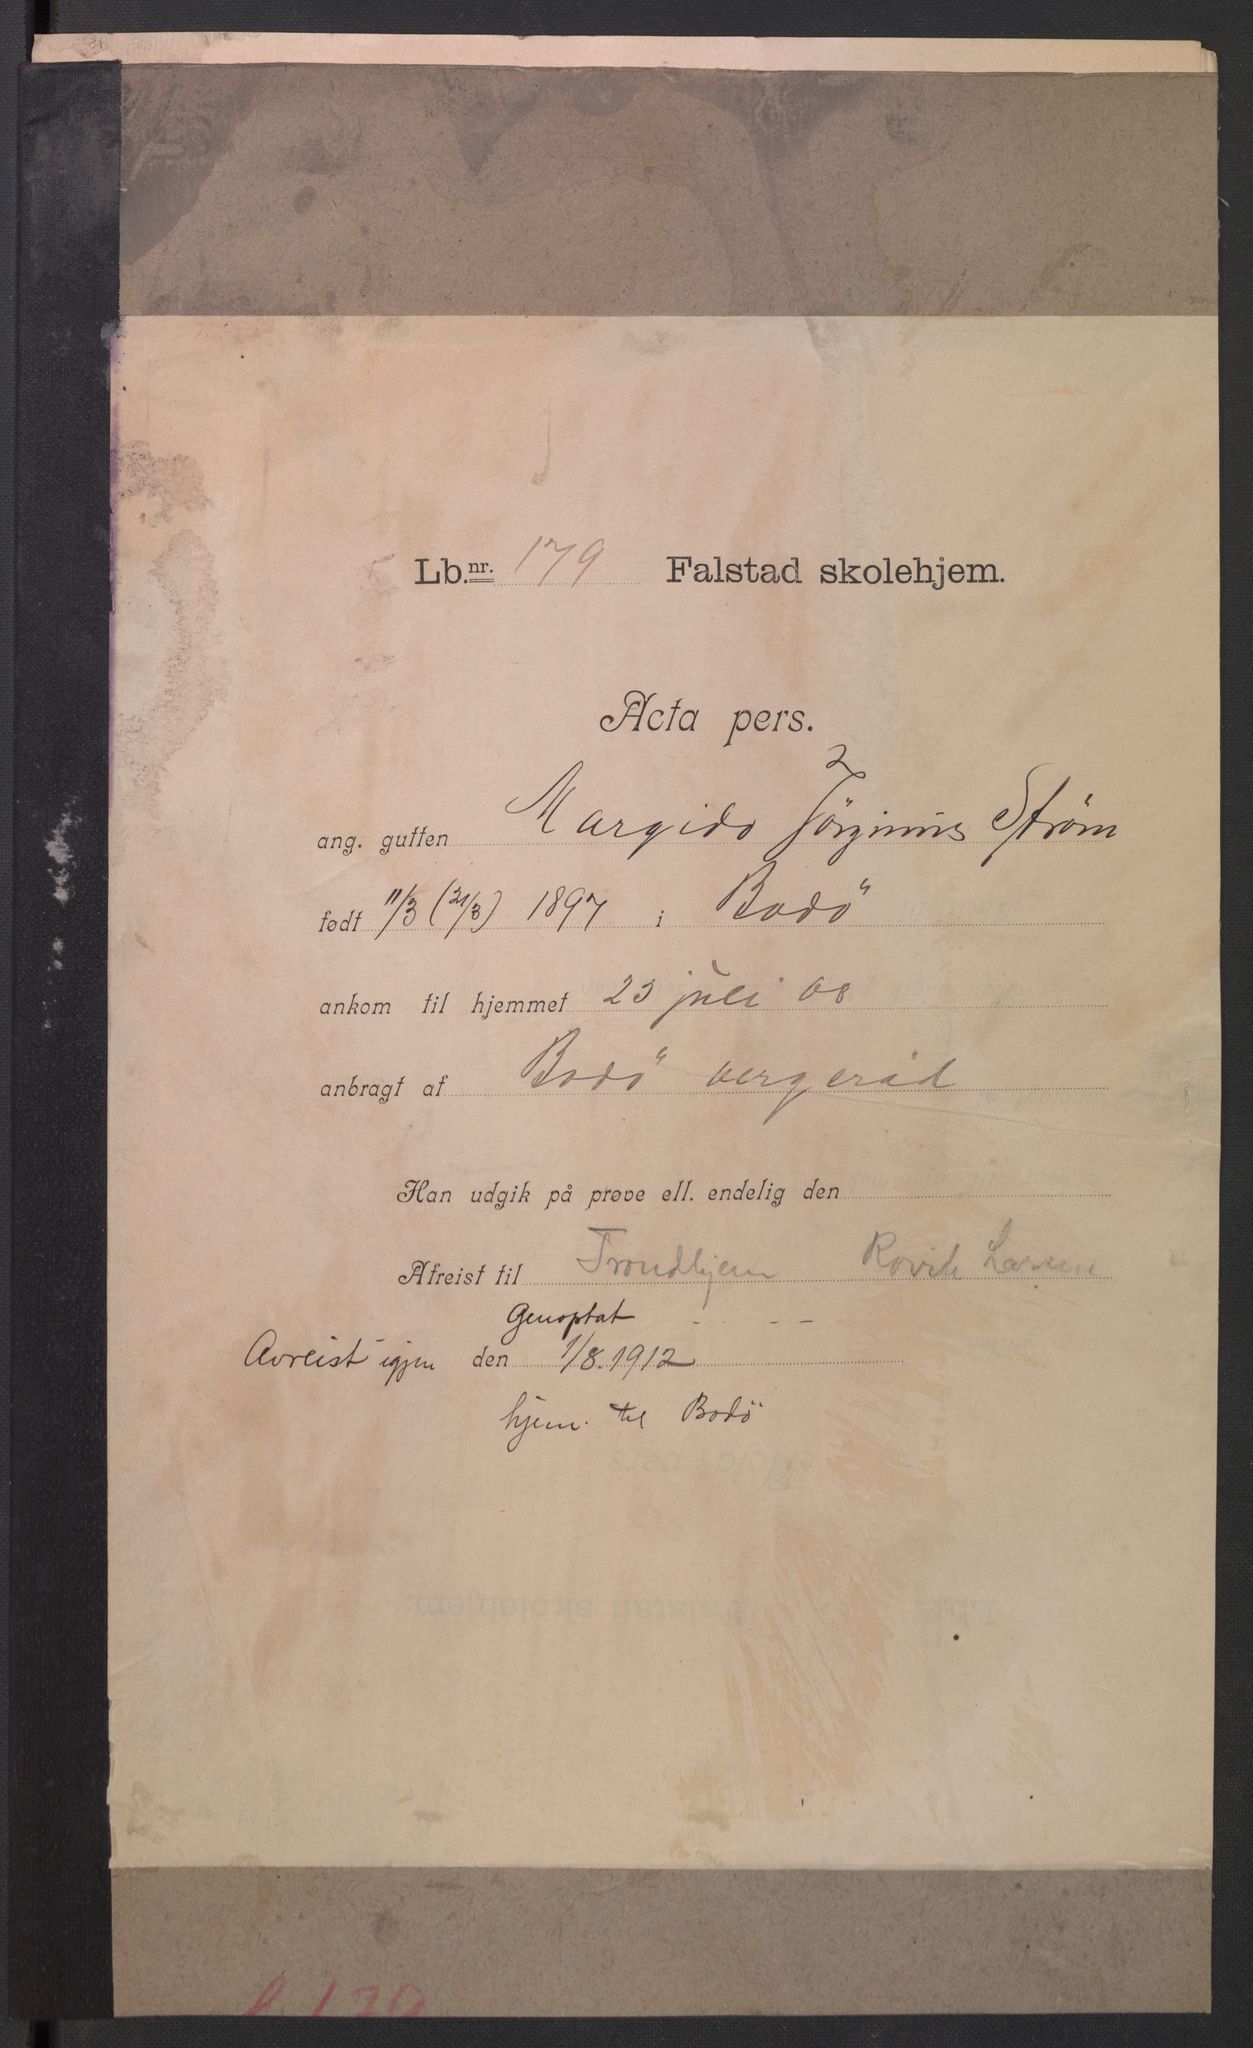 Lb.nr. 179 Falstad skolehjem.
Acta pers.
ang. gutten Margido Jörginus Ström
født 11/3 (21/3) 1897 i Bodö
ankom til hjemmet 23 juli 08
anbragt af Bodö vergeråd
Han udgik på prøve ell. endelig den
Afreist til Trondhjem Rovik Larsen
Genoptat - - -
Avreist igjen den 1/8. 1912
hjem. til Bodö